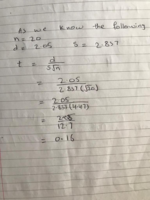 As we know the following
n = 20
d = 2.05 S = 2.837
t = d / S√n
= 2.05 / 2.837(√20)
= 2.05 / 2.837(4.47)
= / 12.7
= 0.16